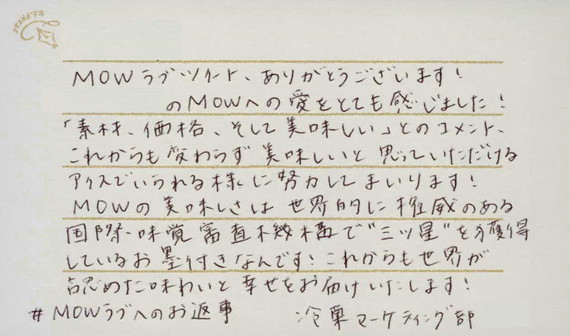 MOWラブツイート、ありがとうございます!
のMOWへの愛をとても感じました!
「素材、価格、そして美味しい」とのコメント、
これからも変わらず美味しいと思っていただける
アイスでいられる様に努力してまいります!
MOWの美味しさは世界的に権威のある
国際味覚審査機構で"三ツ星"を獲得
しているお墨付きなんです!これからも世界が
認めた味わいと幸せをお届けいたします!
#MOWラブへのお返事 冷菓マーケティング部